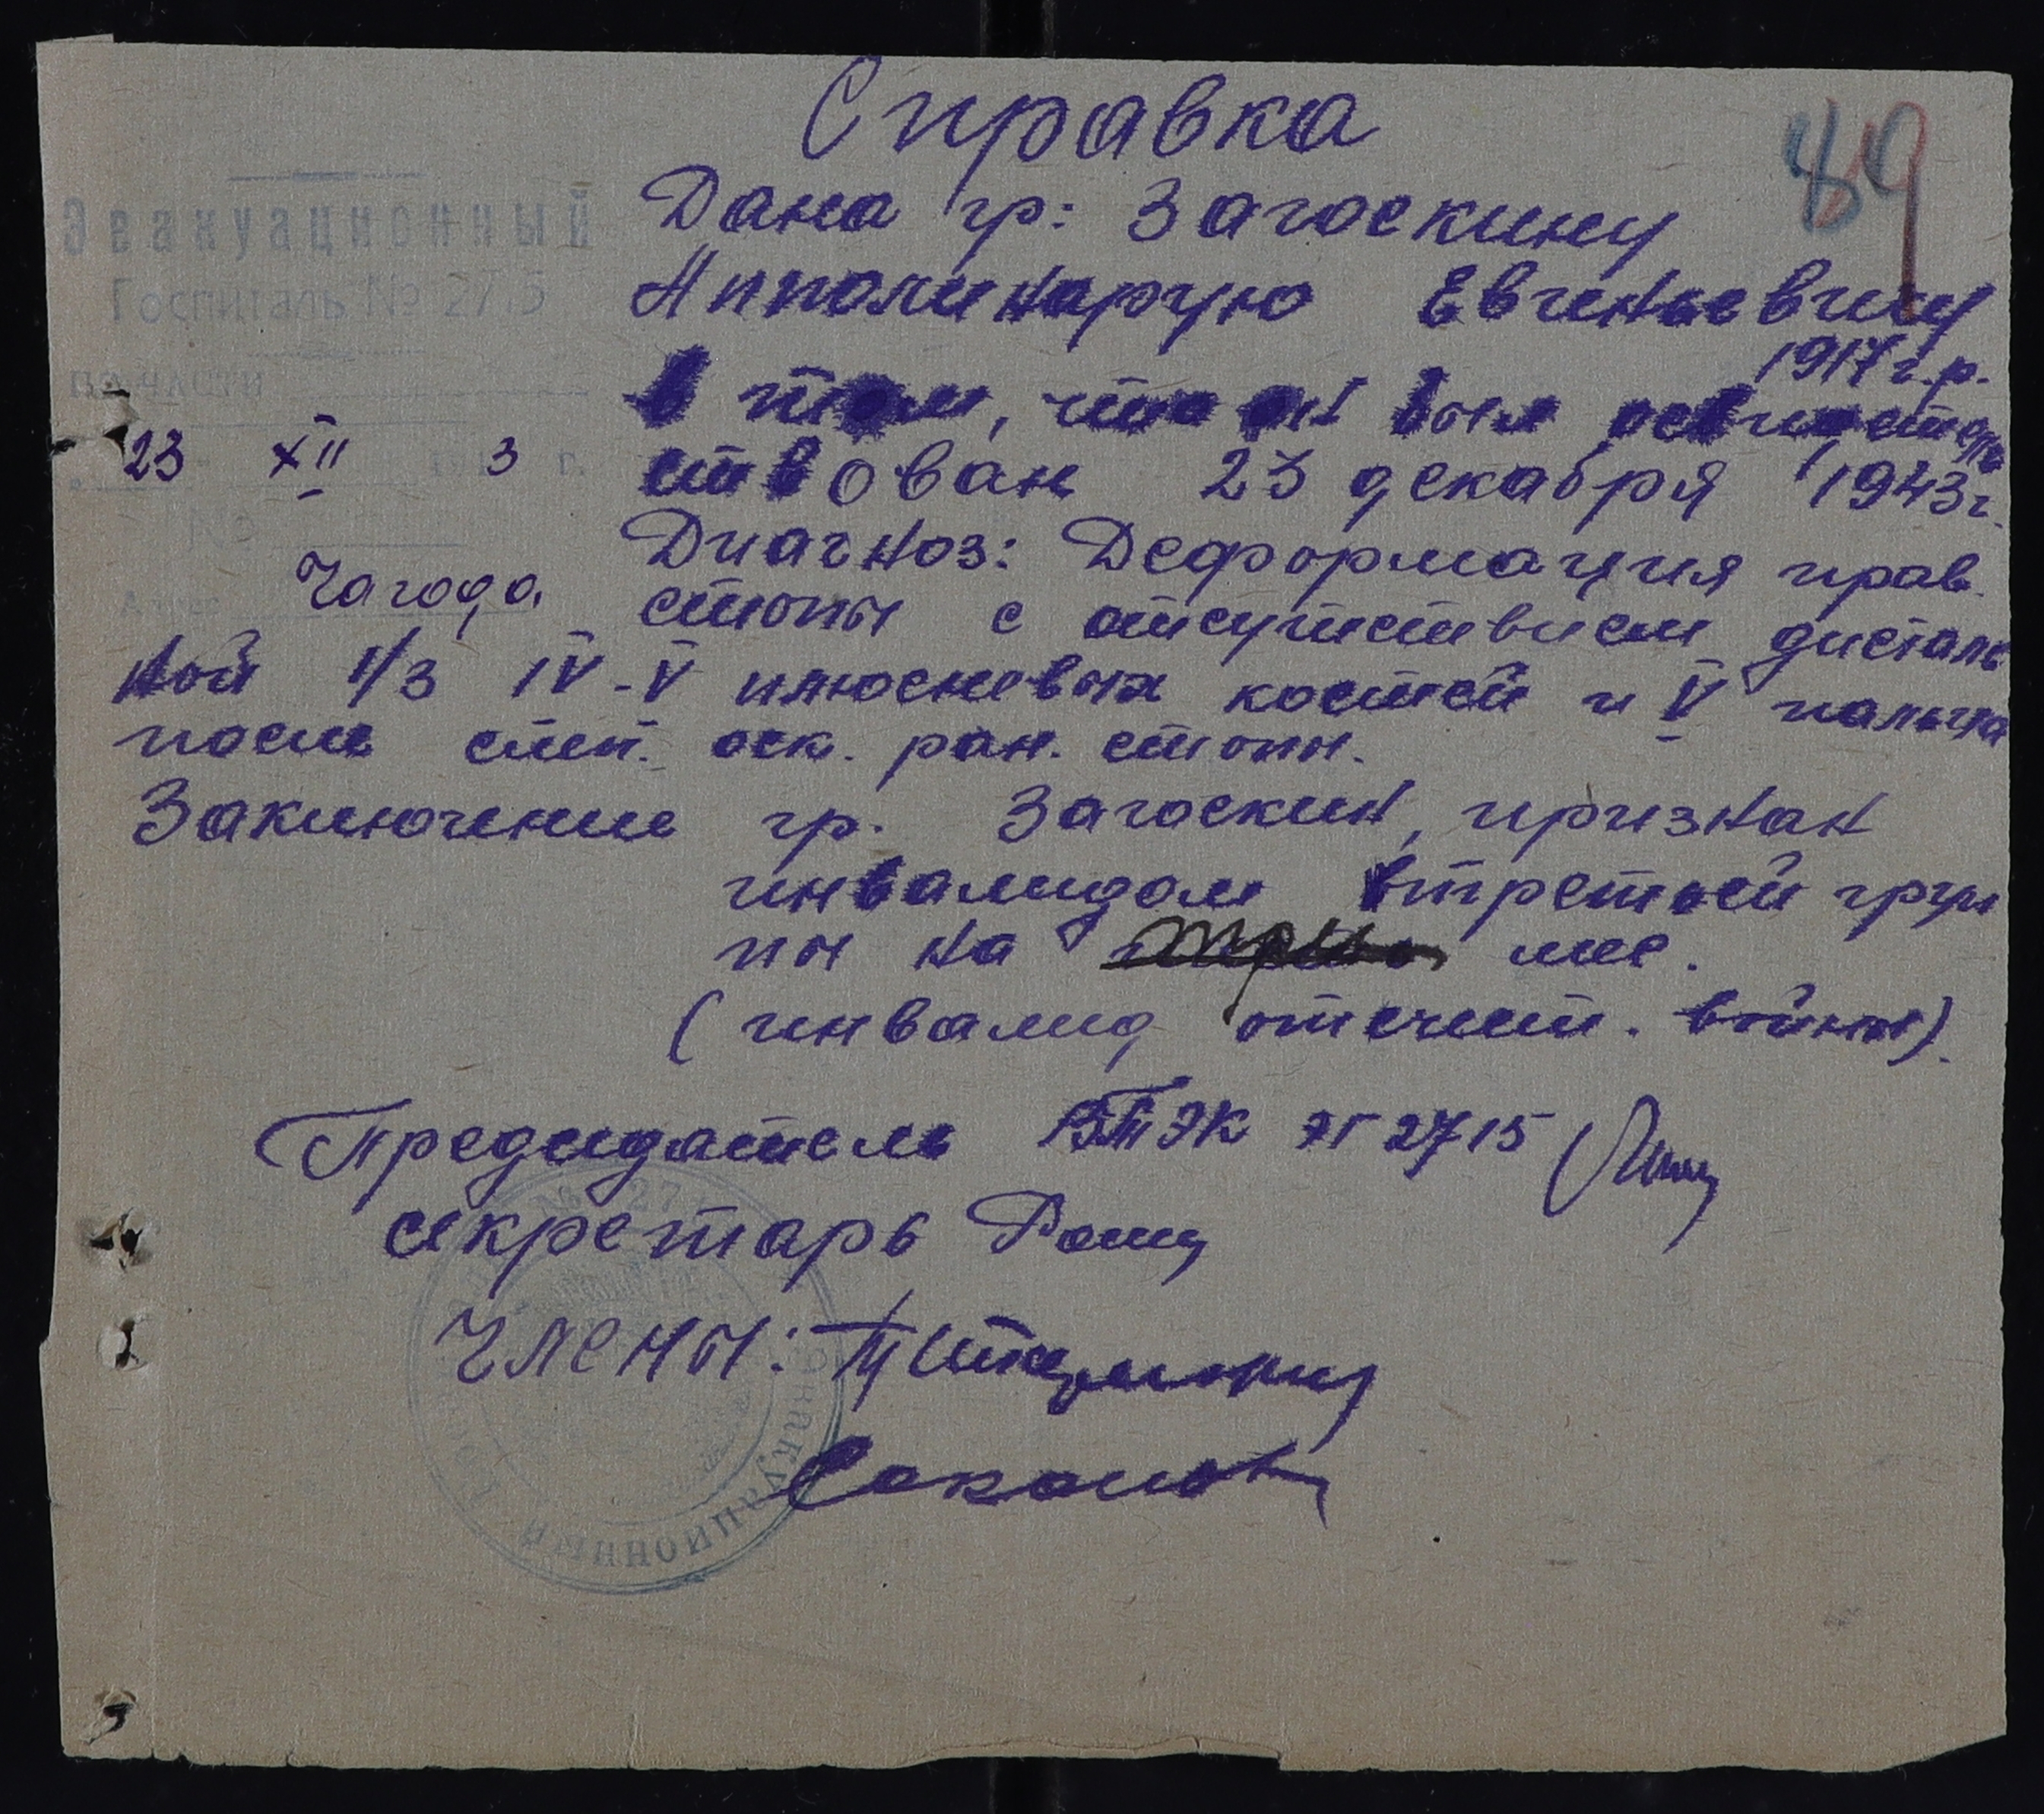 Справка
89
Эвакуационный
Госпиталь № 2715
по части
23 XII 3 г.
№
Адрес Чагода
Дана гр: Загоскину
Апполинарую Евгеньевичу
1917 г.р.
в том, что он был освидетель
ствован 23 декабря 1943г.
Диагноз: Деформация прав.
стопы с отсутствием дисталь
ной 1/3 IV-V плюсневых костей и V пальца
после слеп. оск. ран. стопы.
Заключение гр. Загоскин, признан
инвалидом третьей груп
пы на мес.
(инвалид отечест. войны).
Председатель ВТЭК ЭГ 2715
секретарь
Члены:
Соколов
Эвакуационный